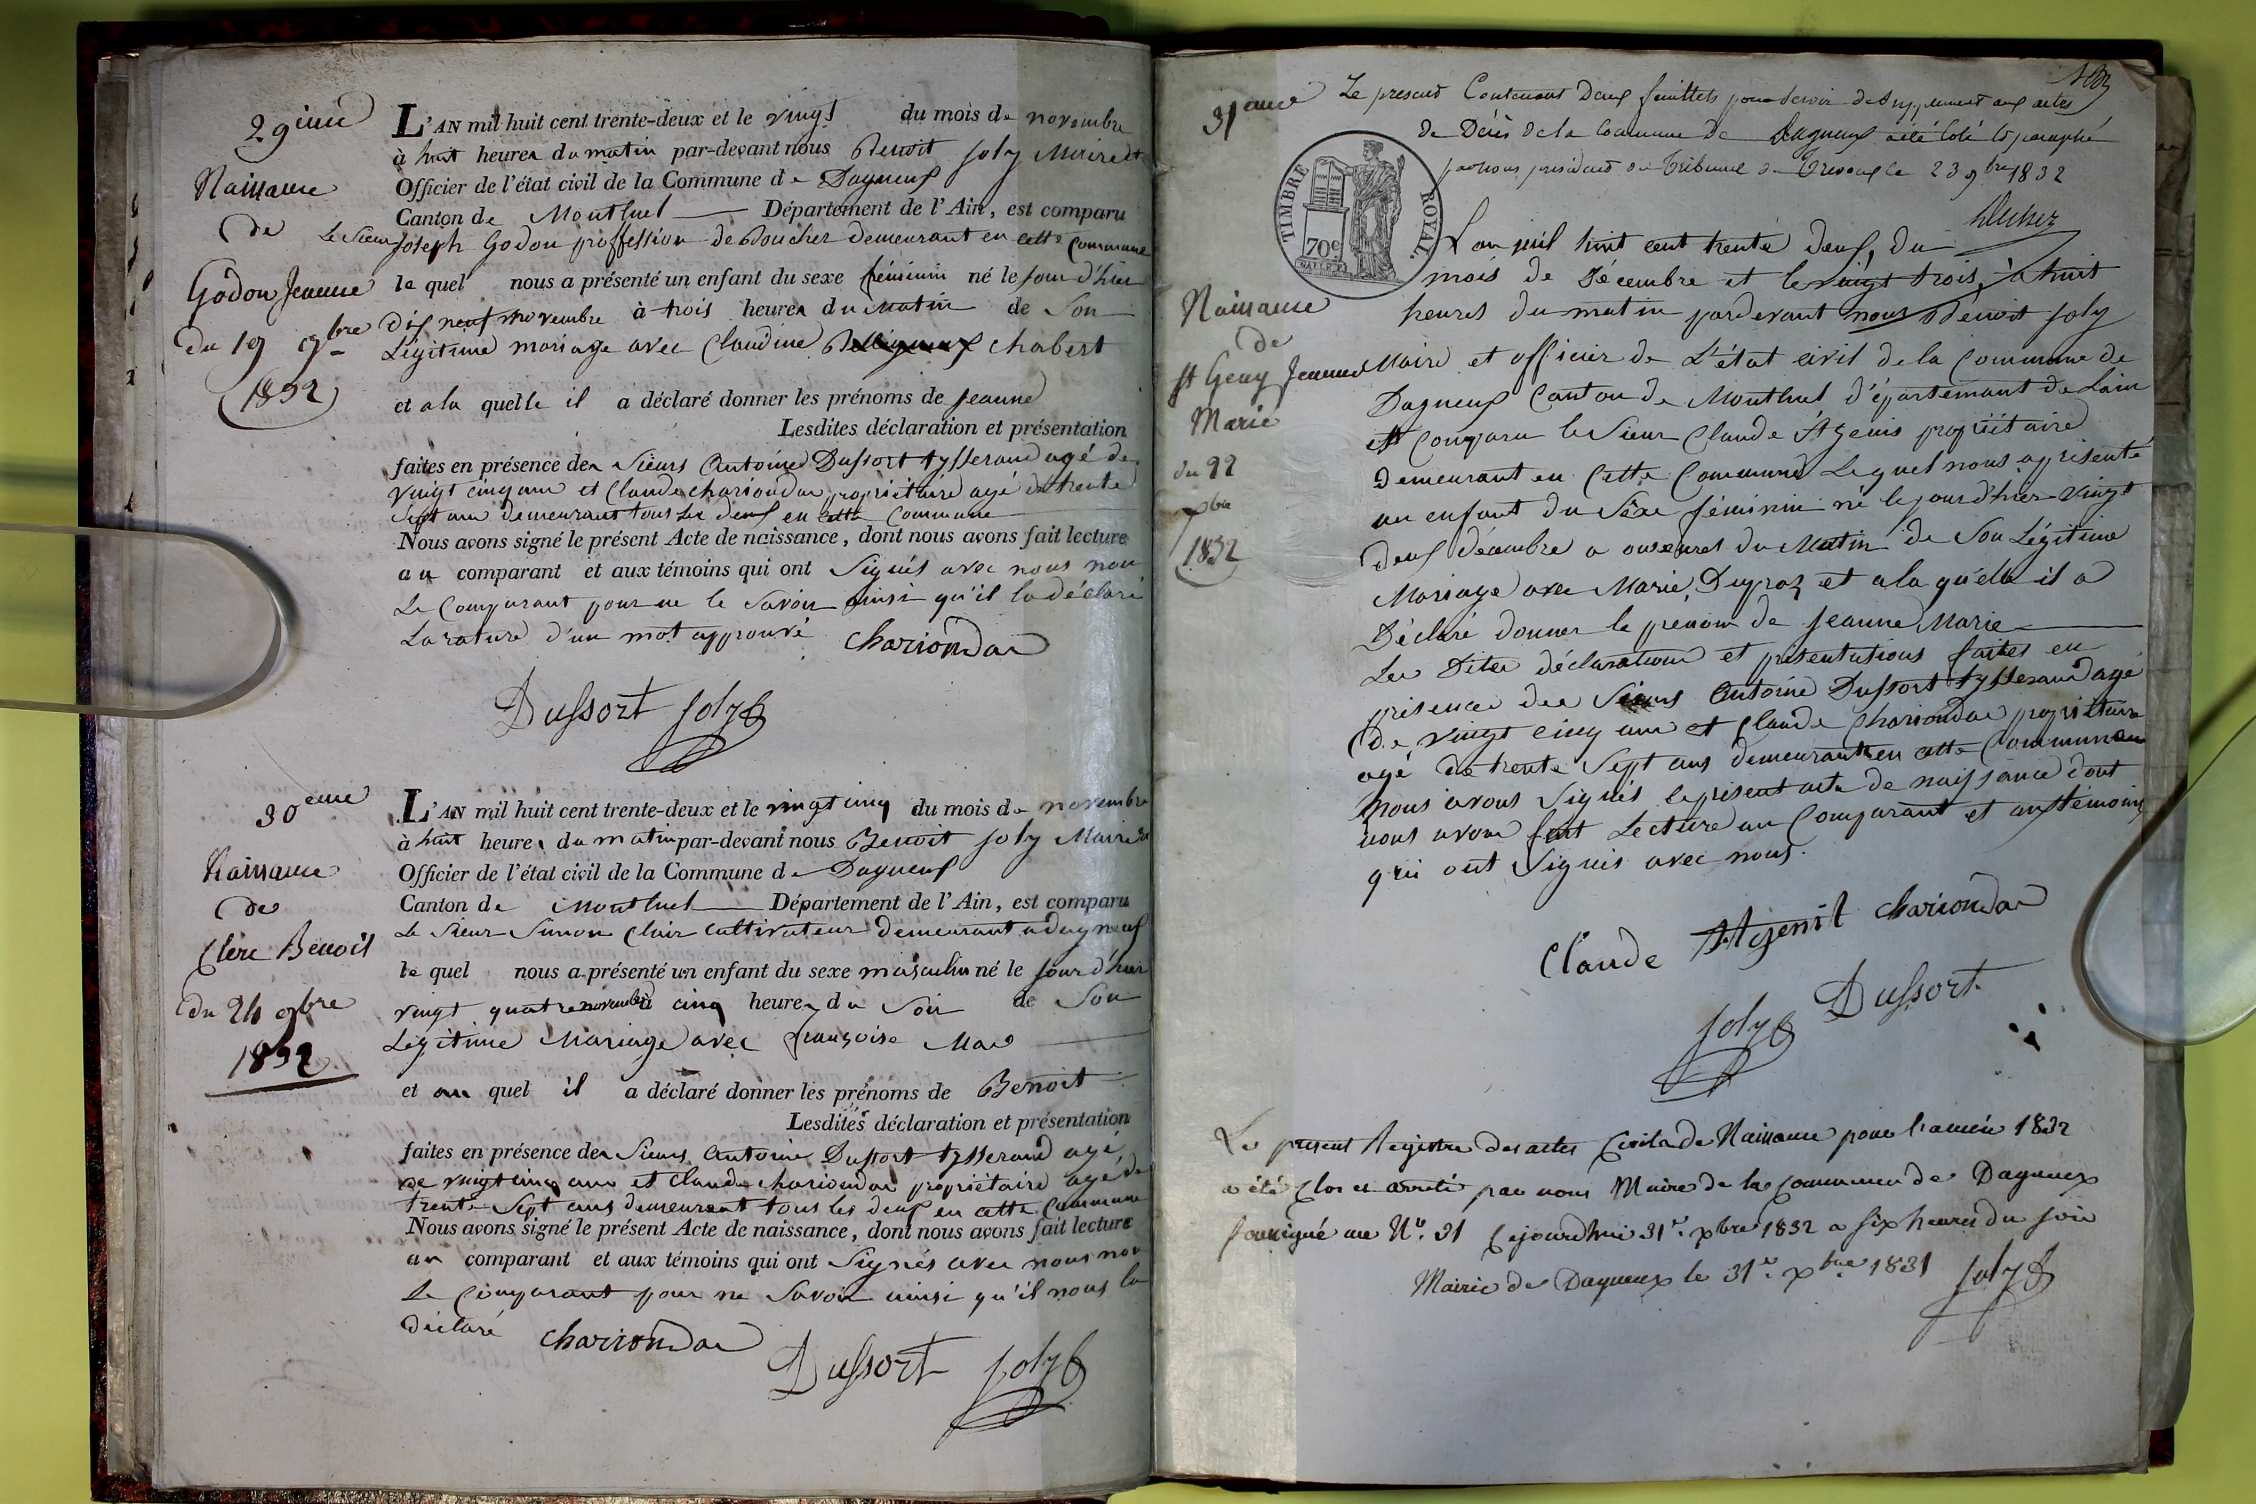 29ème
Naissance
de
Godon Jeanne
du 19 9bre
1832
L'AN mil huit cent trente-deux et le vingt du mois de novembre
à huit heures du matin par-devant nous Benoit Joly Maire et
Officier de l'état civil de la Commune de Dagneux
Canton de Montluel Département de l'Ain, est comparu
Le Sieur Joseph Godon proffession de Boucher demeurant en cette Commune
le quel nous a présenté un enfant du sexe féminin né le jour d'hier
dix neuf novembre à trois heures du Matin de Son
Légitime mariage avec Claudine chabert
et a la quelle il a déclaré donner les prénoms de Jeanne
Lesdites déclaration et présentation
faites en présence des Sieurs Antoine Dussort tysserand agé de
vingt cinq ans et Claude chariondas propriétaire agé de trente
Sept ans demeurant tous les deux en cette Commune
Nous avons signé le présent Acte de naissance, dont nous avons fait lecture
au comparant et aux témoins qui ont Signés avec nous non
Le Comparant pour ne le Savoir ainsi qu'il la déclaré
La rature d'un mot approuvé chariondas
Dussort Joly
30eme
Naissance
de
Clerc Benoit
du 24 9bre
1832
L'AN mil huit cent trente-deux et le vingt cinq du mois de novembre
à huit heures du matin par-devant nous Benoit Joly Maire et
Officier de l'état civil de la Commune de Dagneux
Canton de Montluel Département de l'Ain, est comparu
Le Sieur Simon Clair cultivateur demeurant a dagneux
le quel nous a présenté un enfant du sexe masculin né le jour d'hier
vingt quatre novembre à cinq heures du Soir de Son
Légitime Mariage avec françoise Mas
et au quel il a déclaré donner les prénoms de Benoit
Lesdites déclaration et présentation
faites en présence des Sieurs Antoine Dussort tysserand agé
de vingt cinq ans et Claude chariondas propriétaire agé de
trente Sept ans demeurant tous les deux en cette Commune
Nous avons signé le présent Acte de naissance, dont nous avons fait lecture
au comparant et aux témoins qui ont Signés avec nous non
le Comparant pour ne Savoir ainsi qu'il nous la
déclaré chariondas Dussort Joly
Le present Contenant Deux feuillets pour Servir de Supplement aux actes
de Décès de la Commune de Dagneux a été Coté et paraphé
par nous president du Tribunal de Trevoux le 23 9bre 1832
TIMBRE ROYAL.
70c
31eme
Naissance
de
St Geny Jeanne
Marie
du 22
xbre
1832
L'an mil huit cent trente deux, du
mois de Décembre et le vingt trois, à huit
heures du matin pardevant nous Benoit Joly
Maire et officier de L'état civil de la Commune de
Dagneux Canton de Montluel d'épartemant de Lain
est Comparu le Sieur Claude St Genis propriétaire
demeurant en Cette Commune Lequel nous a présenté
un enfant du Sèxe féminin né le jour d'hier vingt
deux décembre a onze heures du Matin de Son Légitime
Mariage avec Marie Dupraz et a la quelle il a
Déclaré donner le prenom de Jeanne Marie
Les Dites déclarations et présentations faites en
présence des Sieurs Antoine Dussort tysserand agé
de vingt cinq ans et Claude Chariondas propriétaire
agé de trente Sept ans demeurant en cette Commune
Nous avons Signés le présent acte de naissance dont
nous avons fait Lecture au Comparant et aux témoins
qui ont Signés avec nous.
Claude St genit chariondas
Joly Dussort
Le present Registre des actes Civils de Naissance pour l'année 1832
a été Clos et arrêté par nous Maire de la Commune de Dagneux
soussigné au No. 31 Cejourdhui 31e. xbre 1832 a six heures du soir
Mairie de Dagneux le 31e. xbre 1831 Joly